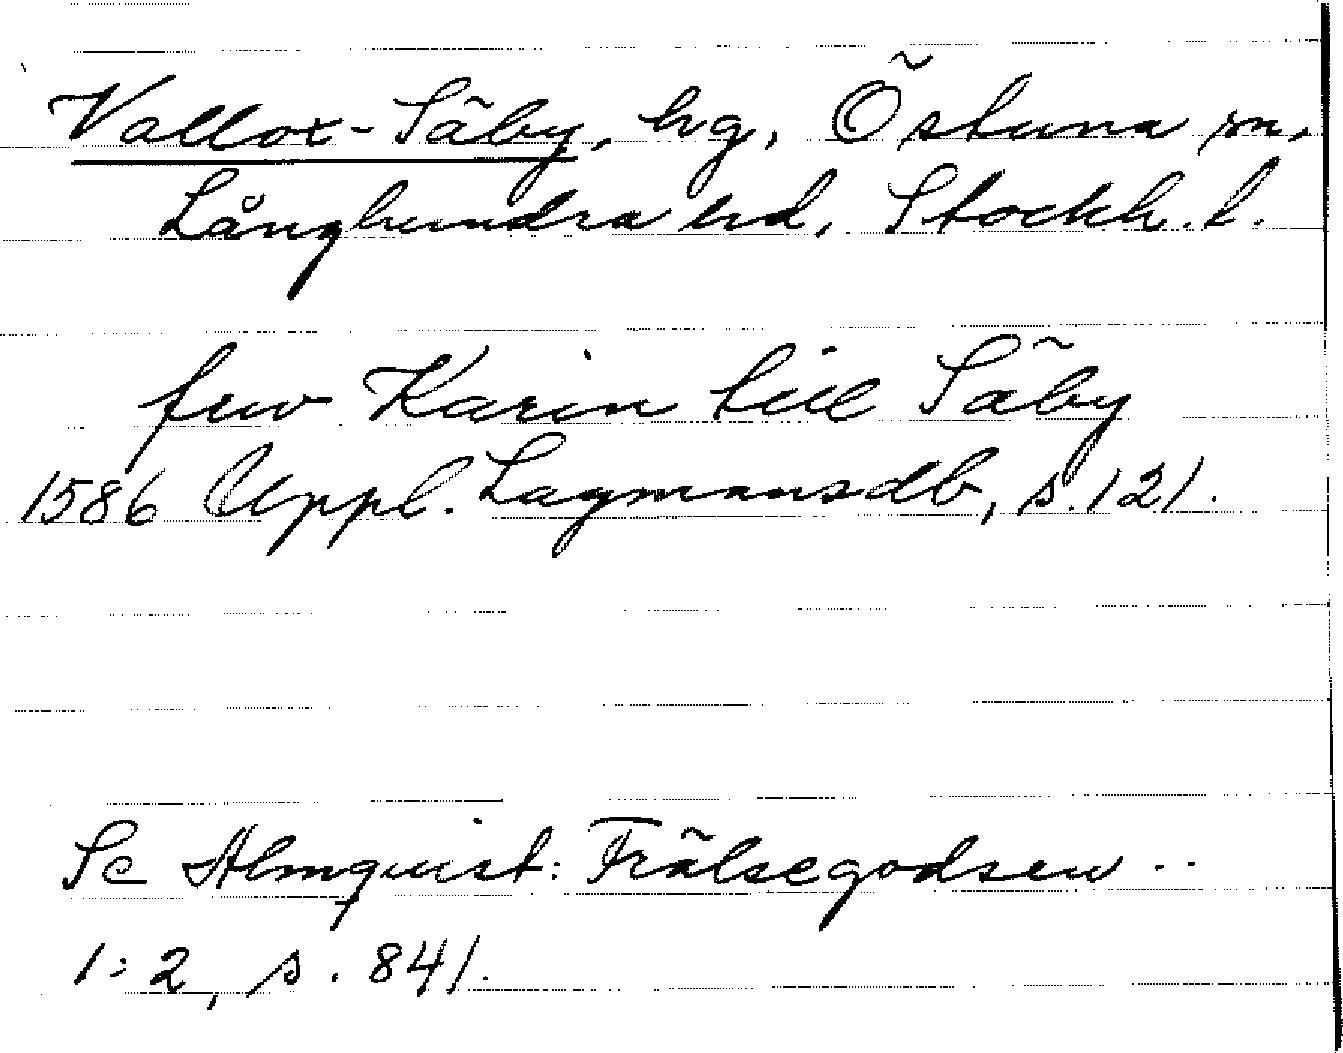 Vallox-Säby, hg, Östuna sn,
Långhundra hd, Stockh. l.
fruv Karin till Säby
1586 Uppl. Lagmansdb, s. 121.
Se Almquist: Frälsegodsen ..
1:2, s. 841.